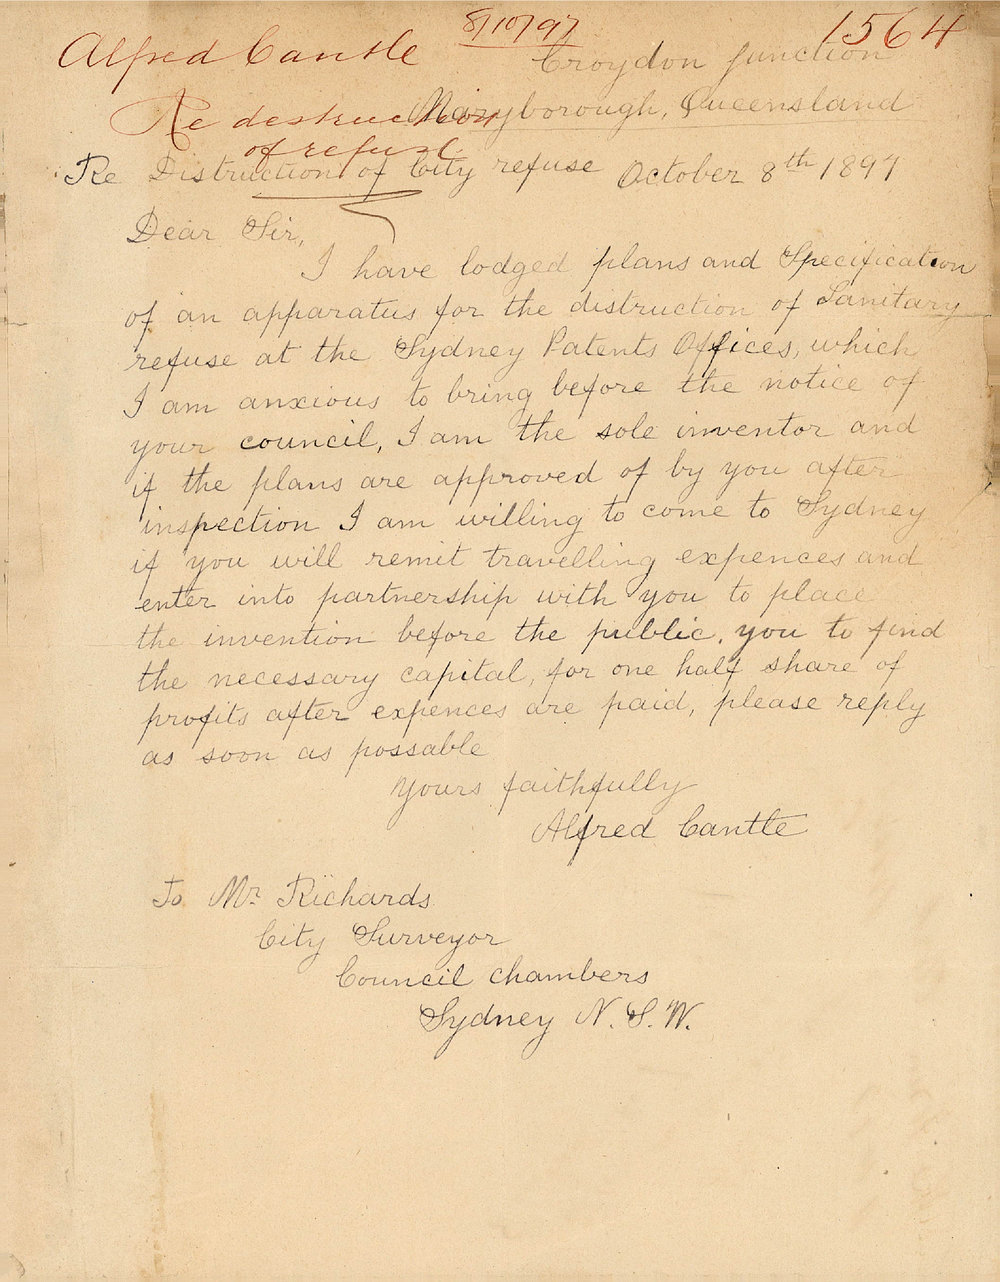 8/10/97
1564
Alfred Cantle
Croydon Junction
Re destruction
Maryborough, Queensland
of refuse
Re Distruction of City refuse October 8th 1897
Dear Sir,
I have lodged plans and Specification
of an apparatus for the distruction of Sanitary
refuse at the Sydney Patents Offices, which
I am anxious to bring before the notice of
your council, I am the sole inventor and
if the plans are approved of by you after
inspection I am willing to come to Sydney
if you will remit travelling expences and
enter into partnership with you to place
the invention before the public, you to find
the necessary capital, for one half share of
profits after expences are paid, please reply
as soon as possable
Yours faithfully
Alfred Cantle
To Mr Richards
City Surveyor
Council chambers
Sydney N. S. W.